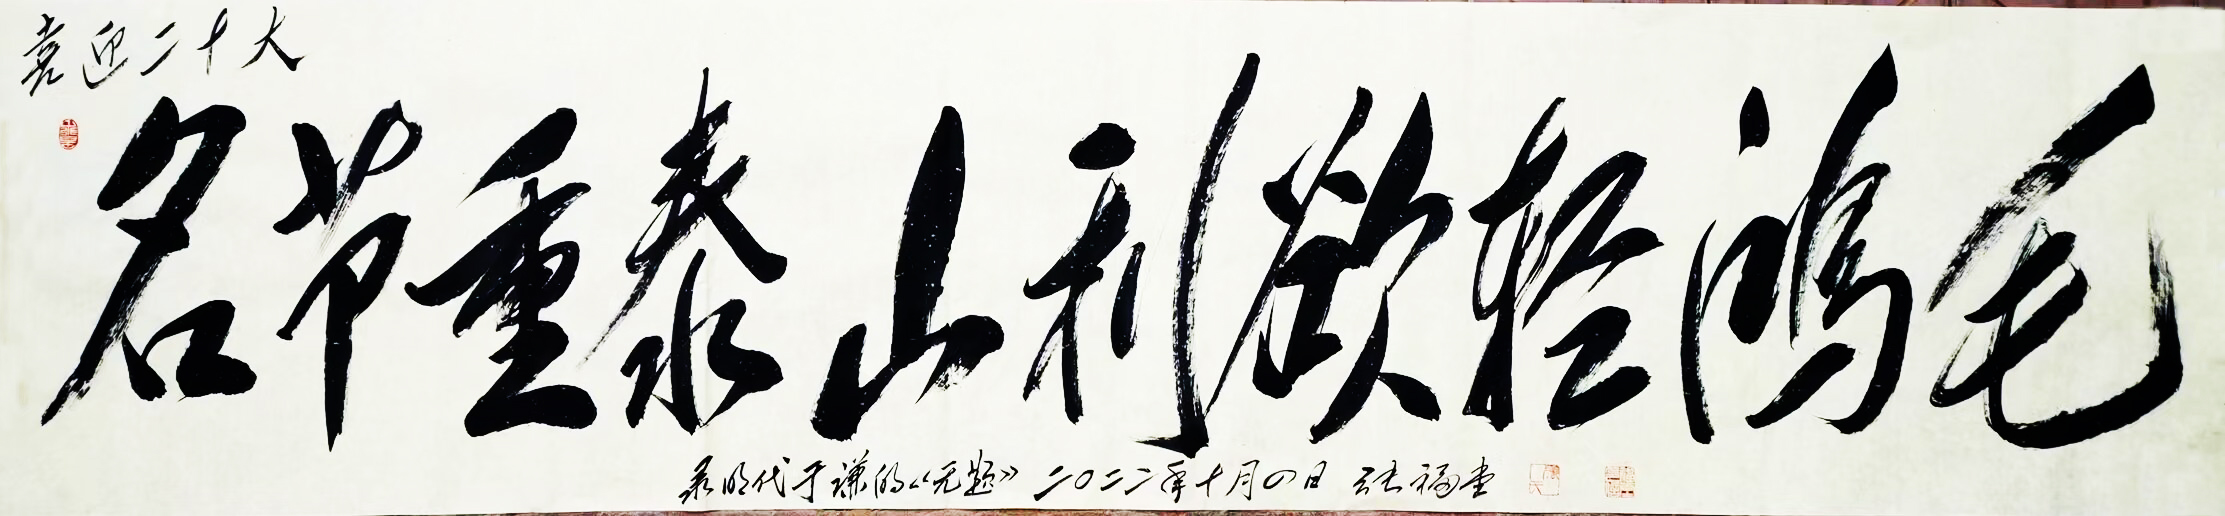 喜迎二十大
名节重泰山利欲轻鸿毛
录明代于谦的《无题》二〇二二年十月四日 张福堂